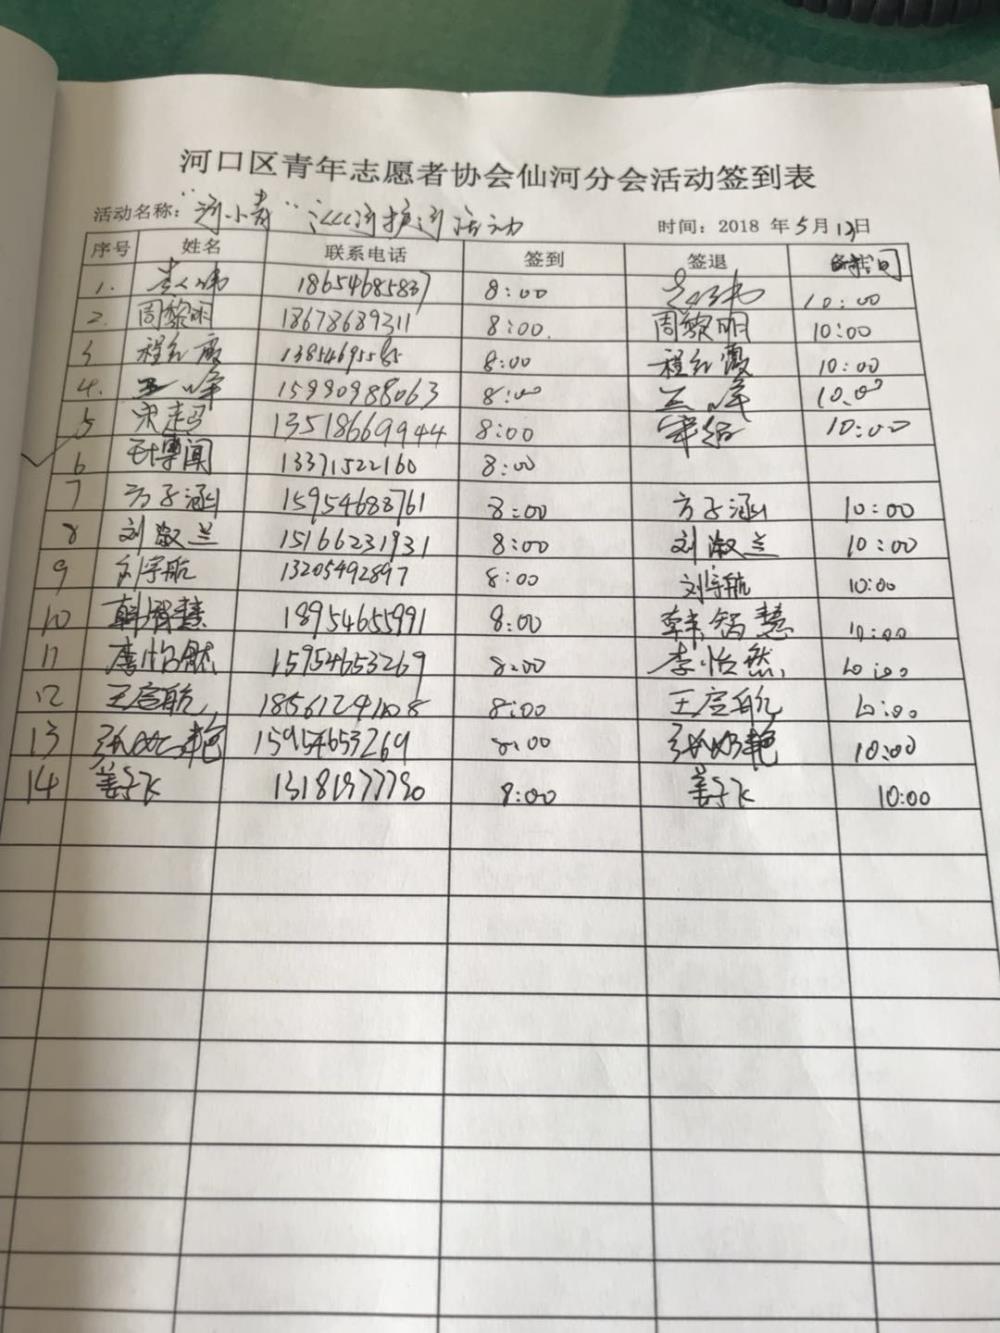 河口区青年志愿者协会仙河分会活动签到表
活动名称：“河小青” 巡河护河活动 时间：2018 年 5 月 12日
序号 姓名 联系电话 签到 签退 时间
1. 18654685837 8:00 10:00
2. 周黎明 18678689311 8:00. 周黎明 10:00
3 程红霞 13854695585 8:00 程红霞 10:00
4. 王峰 15990988063 8:00 王峰 10:00
5 宋 13518669944 8:00 10:00
6 博闻 13371522160 8:00
7 方子涵 15954688761 8:00 方子涵 10:00
8 刘淑兰 15166231931 8:00 刘淑兰 10:00
9 刘宇航 13205492897 8:00 刘宇航 10:00
10 韩智慧 18954655991 8:00 韩智慧 10:00
11 李怡然 15954653269 8:00 李怡然 10:00
12 王启航 18561241108 8:00 王启航 10:00
13 张艳 15954653269 8:00 张艳 10:00
14 姜子飞 13181977790 8:00 姜子飞 10:00